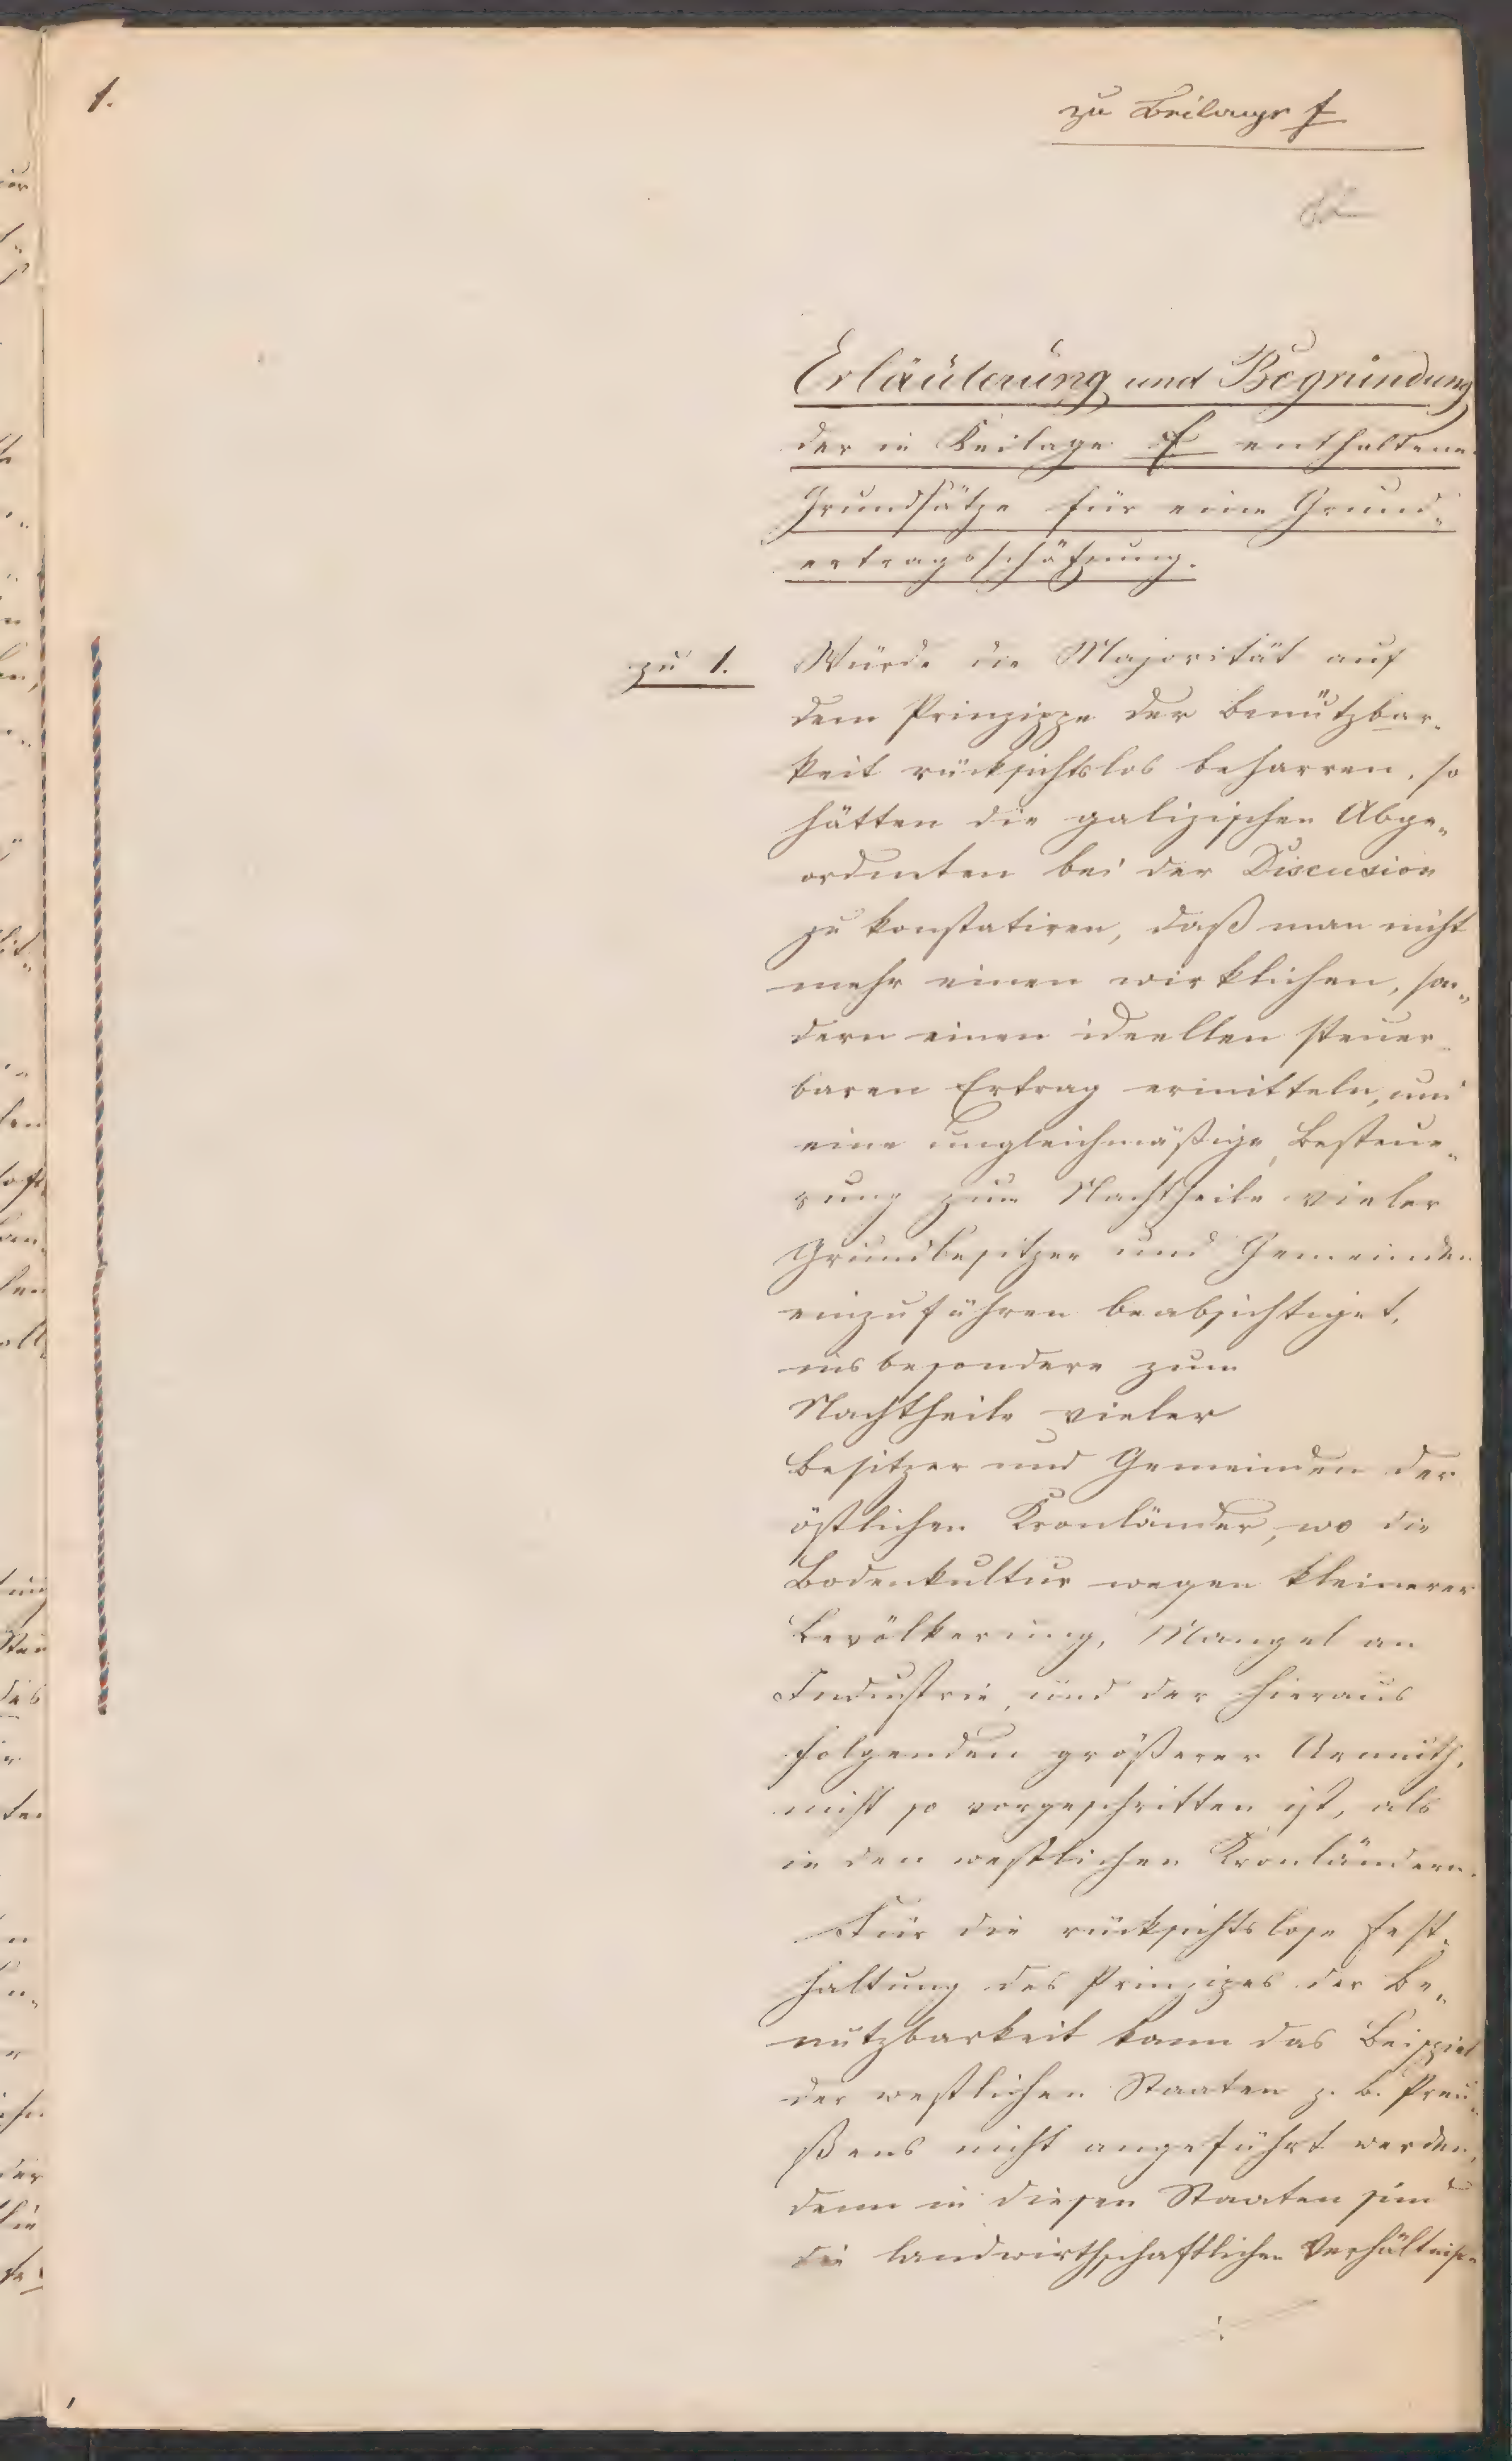 1.
zu Beilage f
Erläuterung und Begründung
der in Beilage f enthaltenen
Grundsätze für eine Grund„
ertragsschätzung.
zu 1.
Würde die Majorität auf
dem Prinzippe der Benützbar„
keit rücksichtslos beharren, so
hätten die galizischen Abge„
ordneten bei der Discusion
zu konstatiren, daß man nicht
mehr einen wirklichen, son„
dern einen ideellen steuer„
baren Ertrag ermitteln, und
eine ungleichmäßige Besteue„
rung zum Nachtheile vieler
Grundbesitzer und Gemeinden
einzuführen beabsichtiget,
insbesondere zum
Nachtheile vieler
Besitzer und Gemeinden der
östlichen Kronländer, wo die
Bodenkultur wegen kleinerer
Bevölkerung, Mangel an
Industrie, und der hieraus
folgenden größerer Armuth,
nicht so vorgeschritten ist, als
in den westlichen Kronländern.
Für die rücksichtslose Fest„
haltung des Prinzipes der Be„
nutzbarkeit kann das Beispiel
der westlichen Staaten z. B. Preu„
ßens nicht angeführt werden,
denn in diesen Staaten sind
die landwirthschaftlichen Verhältniße